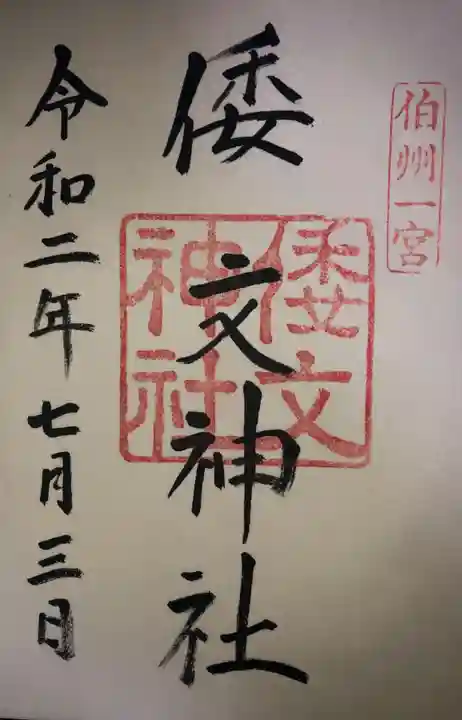 伯州一宮
倭文神社
倭文神社
令和二年七月三日